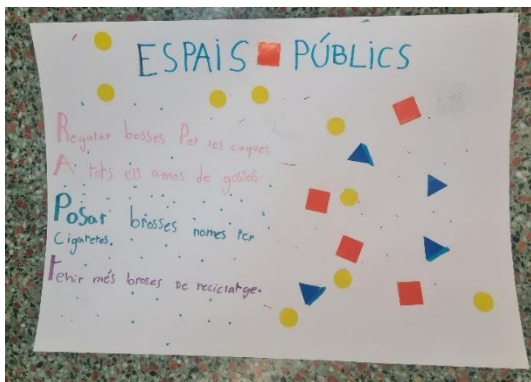 ESPAIS PÚBLICS
Regalar bosses Per les caques.
A tots els amos de gossos
Posar brosses nomes Per
Cigarretes.
Tenir més broses De reciclatge.